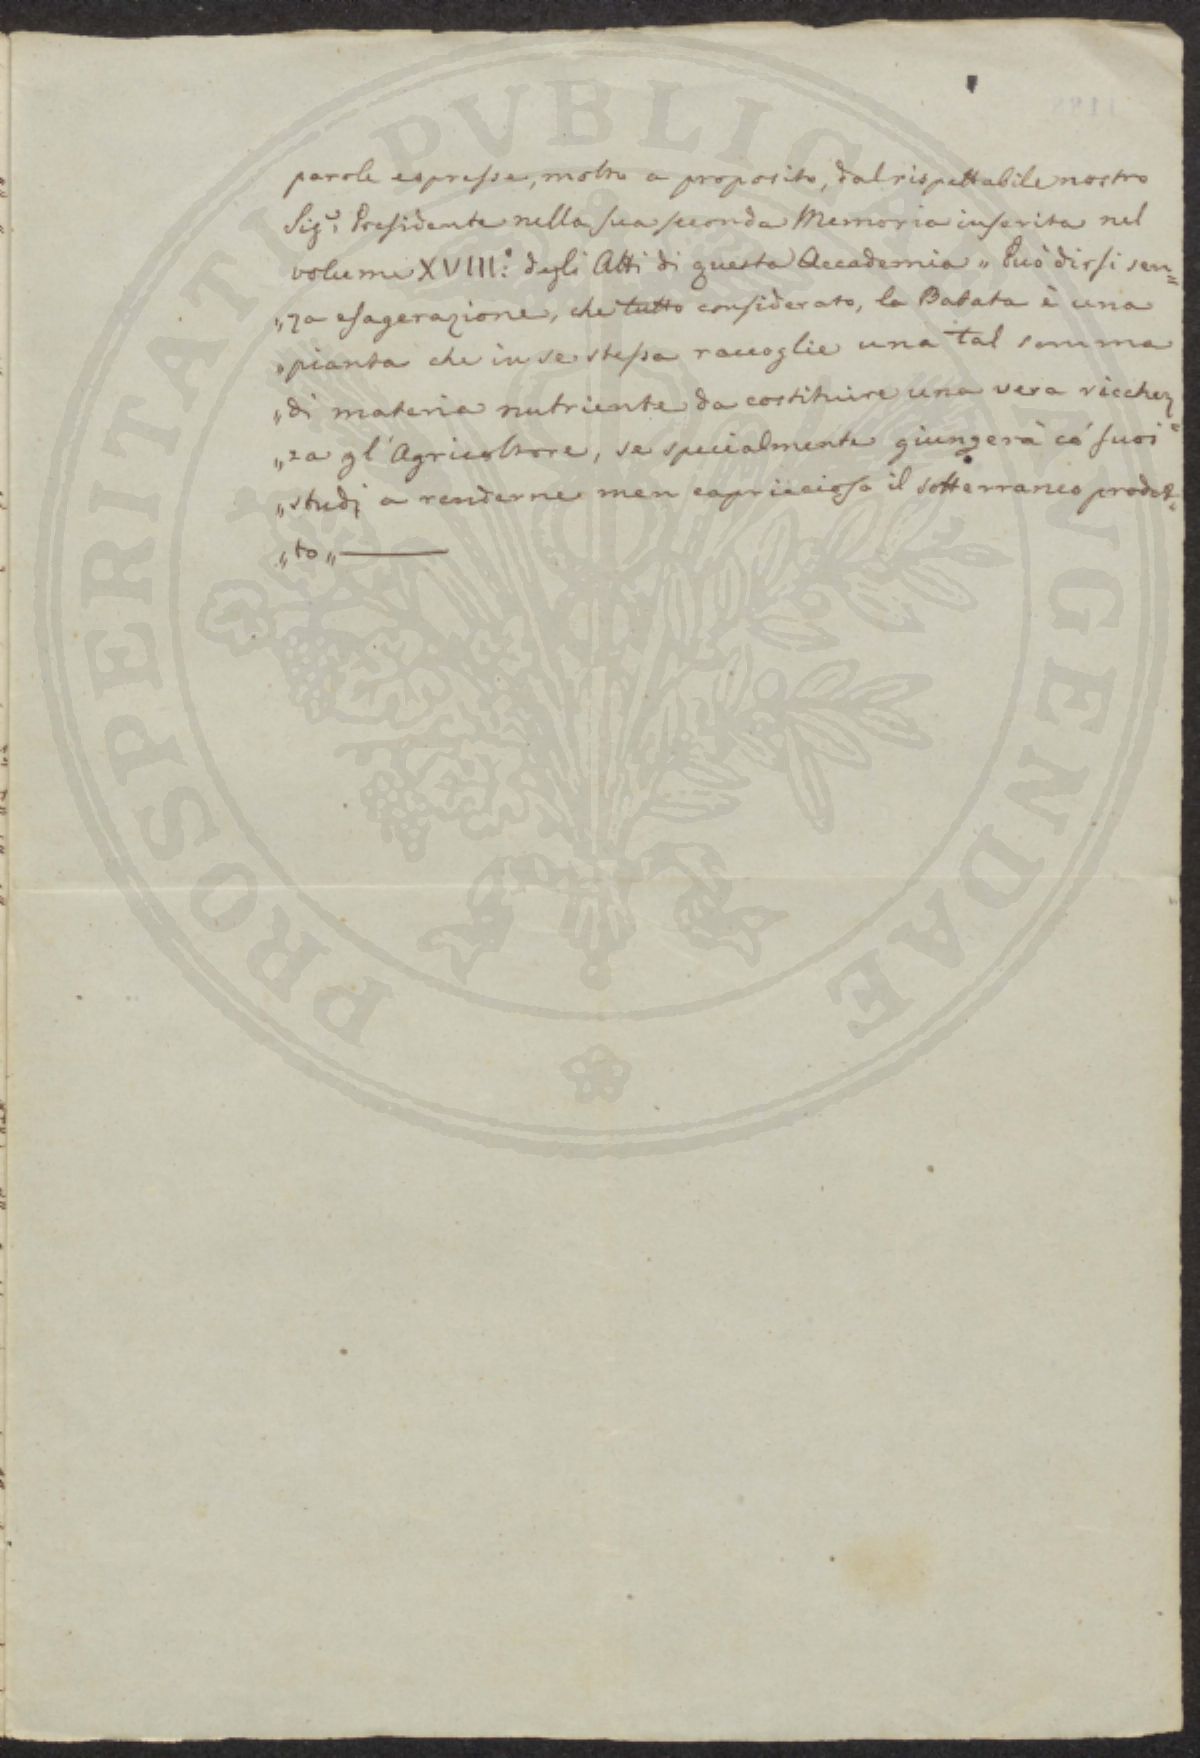 parole espresse, molto a proposito, dal rispettabile nostro
Sig.r Presidente nella sua seconda Memoria inserita nel
volume XVIII.° degli Atti di questa Accademia „ Può dirsi sen=
„za esagerazione, che tutto considerato, la Batata è una
„pianta che in se stessa raccoglie una tal somma
„di materia nutriente da costituire una vera ricchez=
„za gl'Agricoltore, se specialmente giungerà co' suoi
„studj a renderne men capriccioso il sotterraneo prodot=
„to „
PROSPERITATI PVBLICAE AVGENDAE